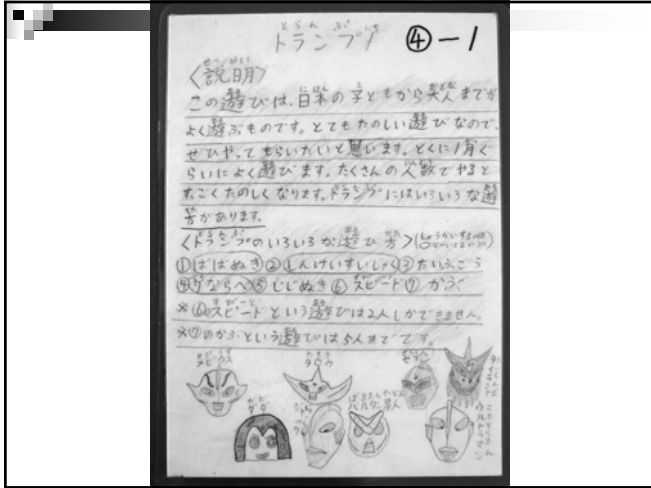 トランプ1 ④-1
せつめい
〈説明〉
この遊びは、日本の子どもから大人までが
よく遊ぶものです。とてもたのしい遊びなので、
ぜひやってもらいたいと思います。とくに1月ぐ
らいによく遊びます。たくさんの人数でやると
すごくたのしくなります。トランプにはいろいろな遊
方があります。
〈トランプのいろいろな遊び方〉
①ばばぬき②しんけいすいじゃく③だいふごう
④7ならべ⑤じじぬき⑥スピード⑦かぶ
※⑥スピードという遊びは2人しかできません。
※⑦のかぶという遊びは5人までです。
メビウス
タロウ
セブン
ダダ
バルタン星人
ウルトラマン